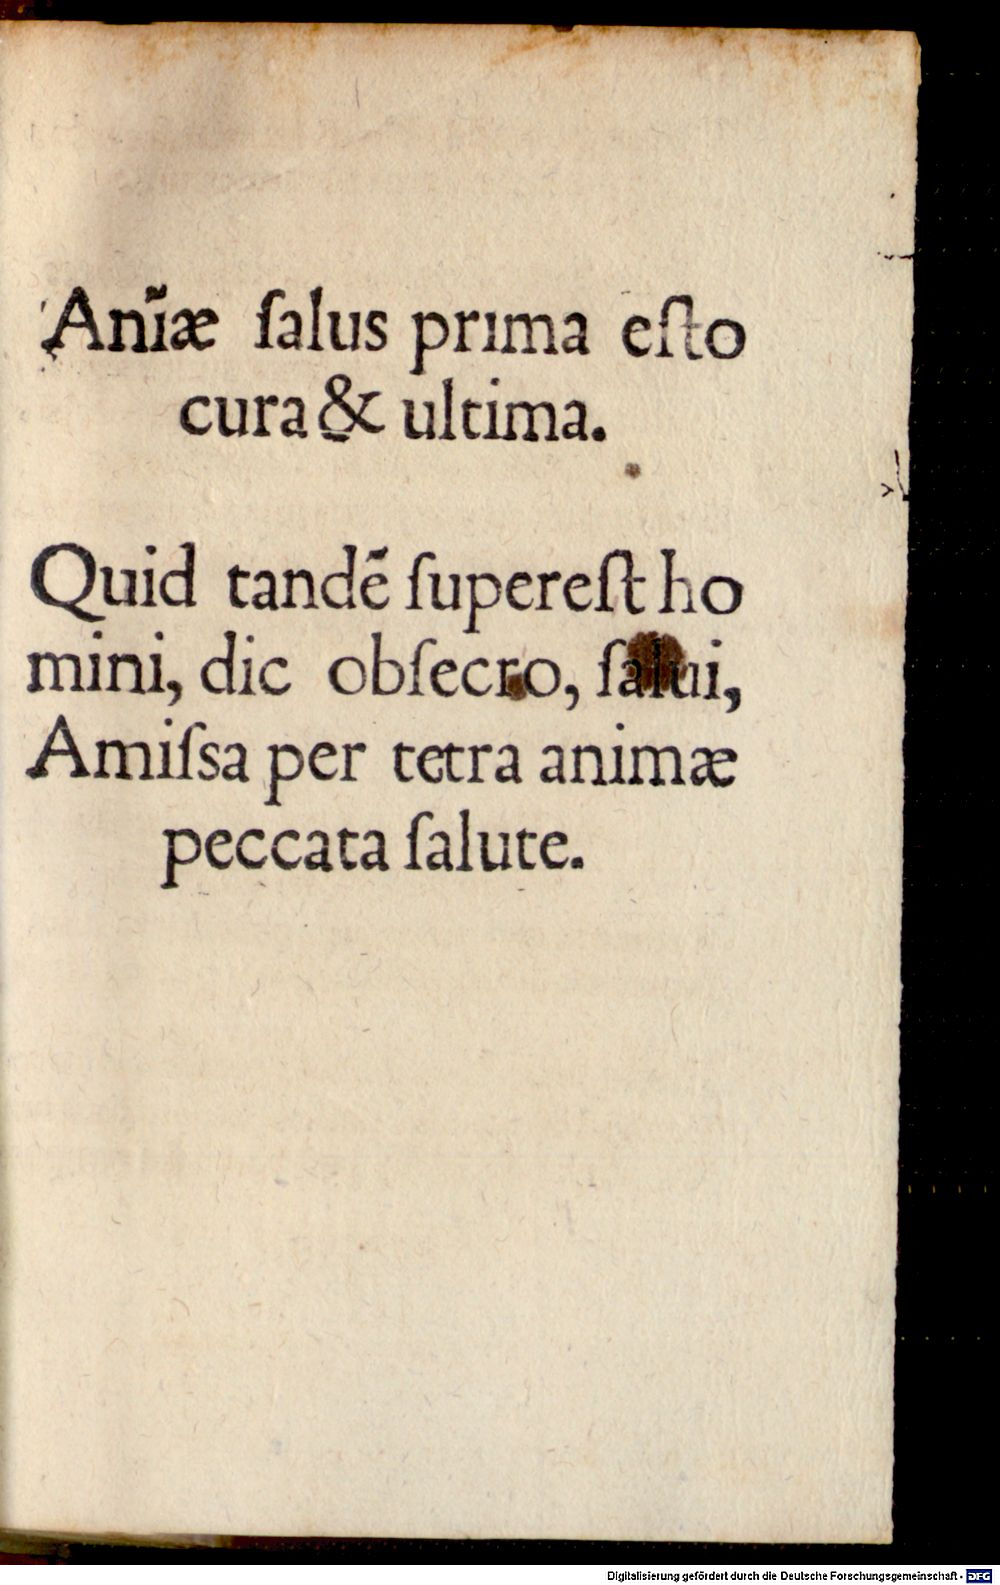 Anı̃æ ſalus prima eſto
cura & ultima.
Quid tandẽ ſupereſt ho
mini, dic obſecro, ſalui,
Amiſsa per tetra animæ
peccata ſalute.
Digitalisierung gefördert durch die Deutsche Forschungsgemeinschaft - DFG